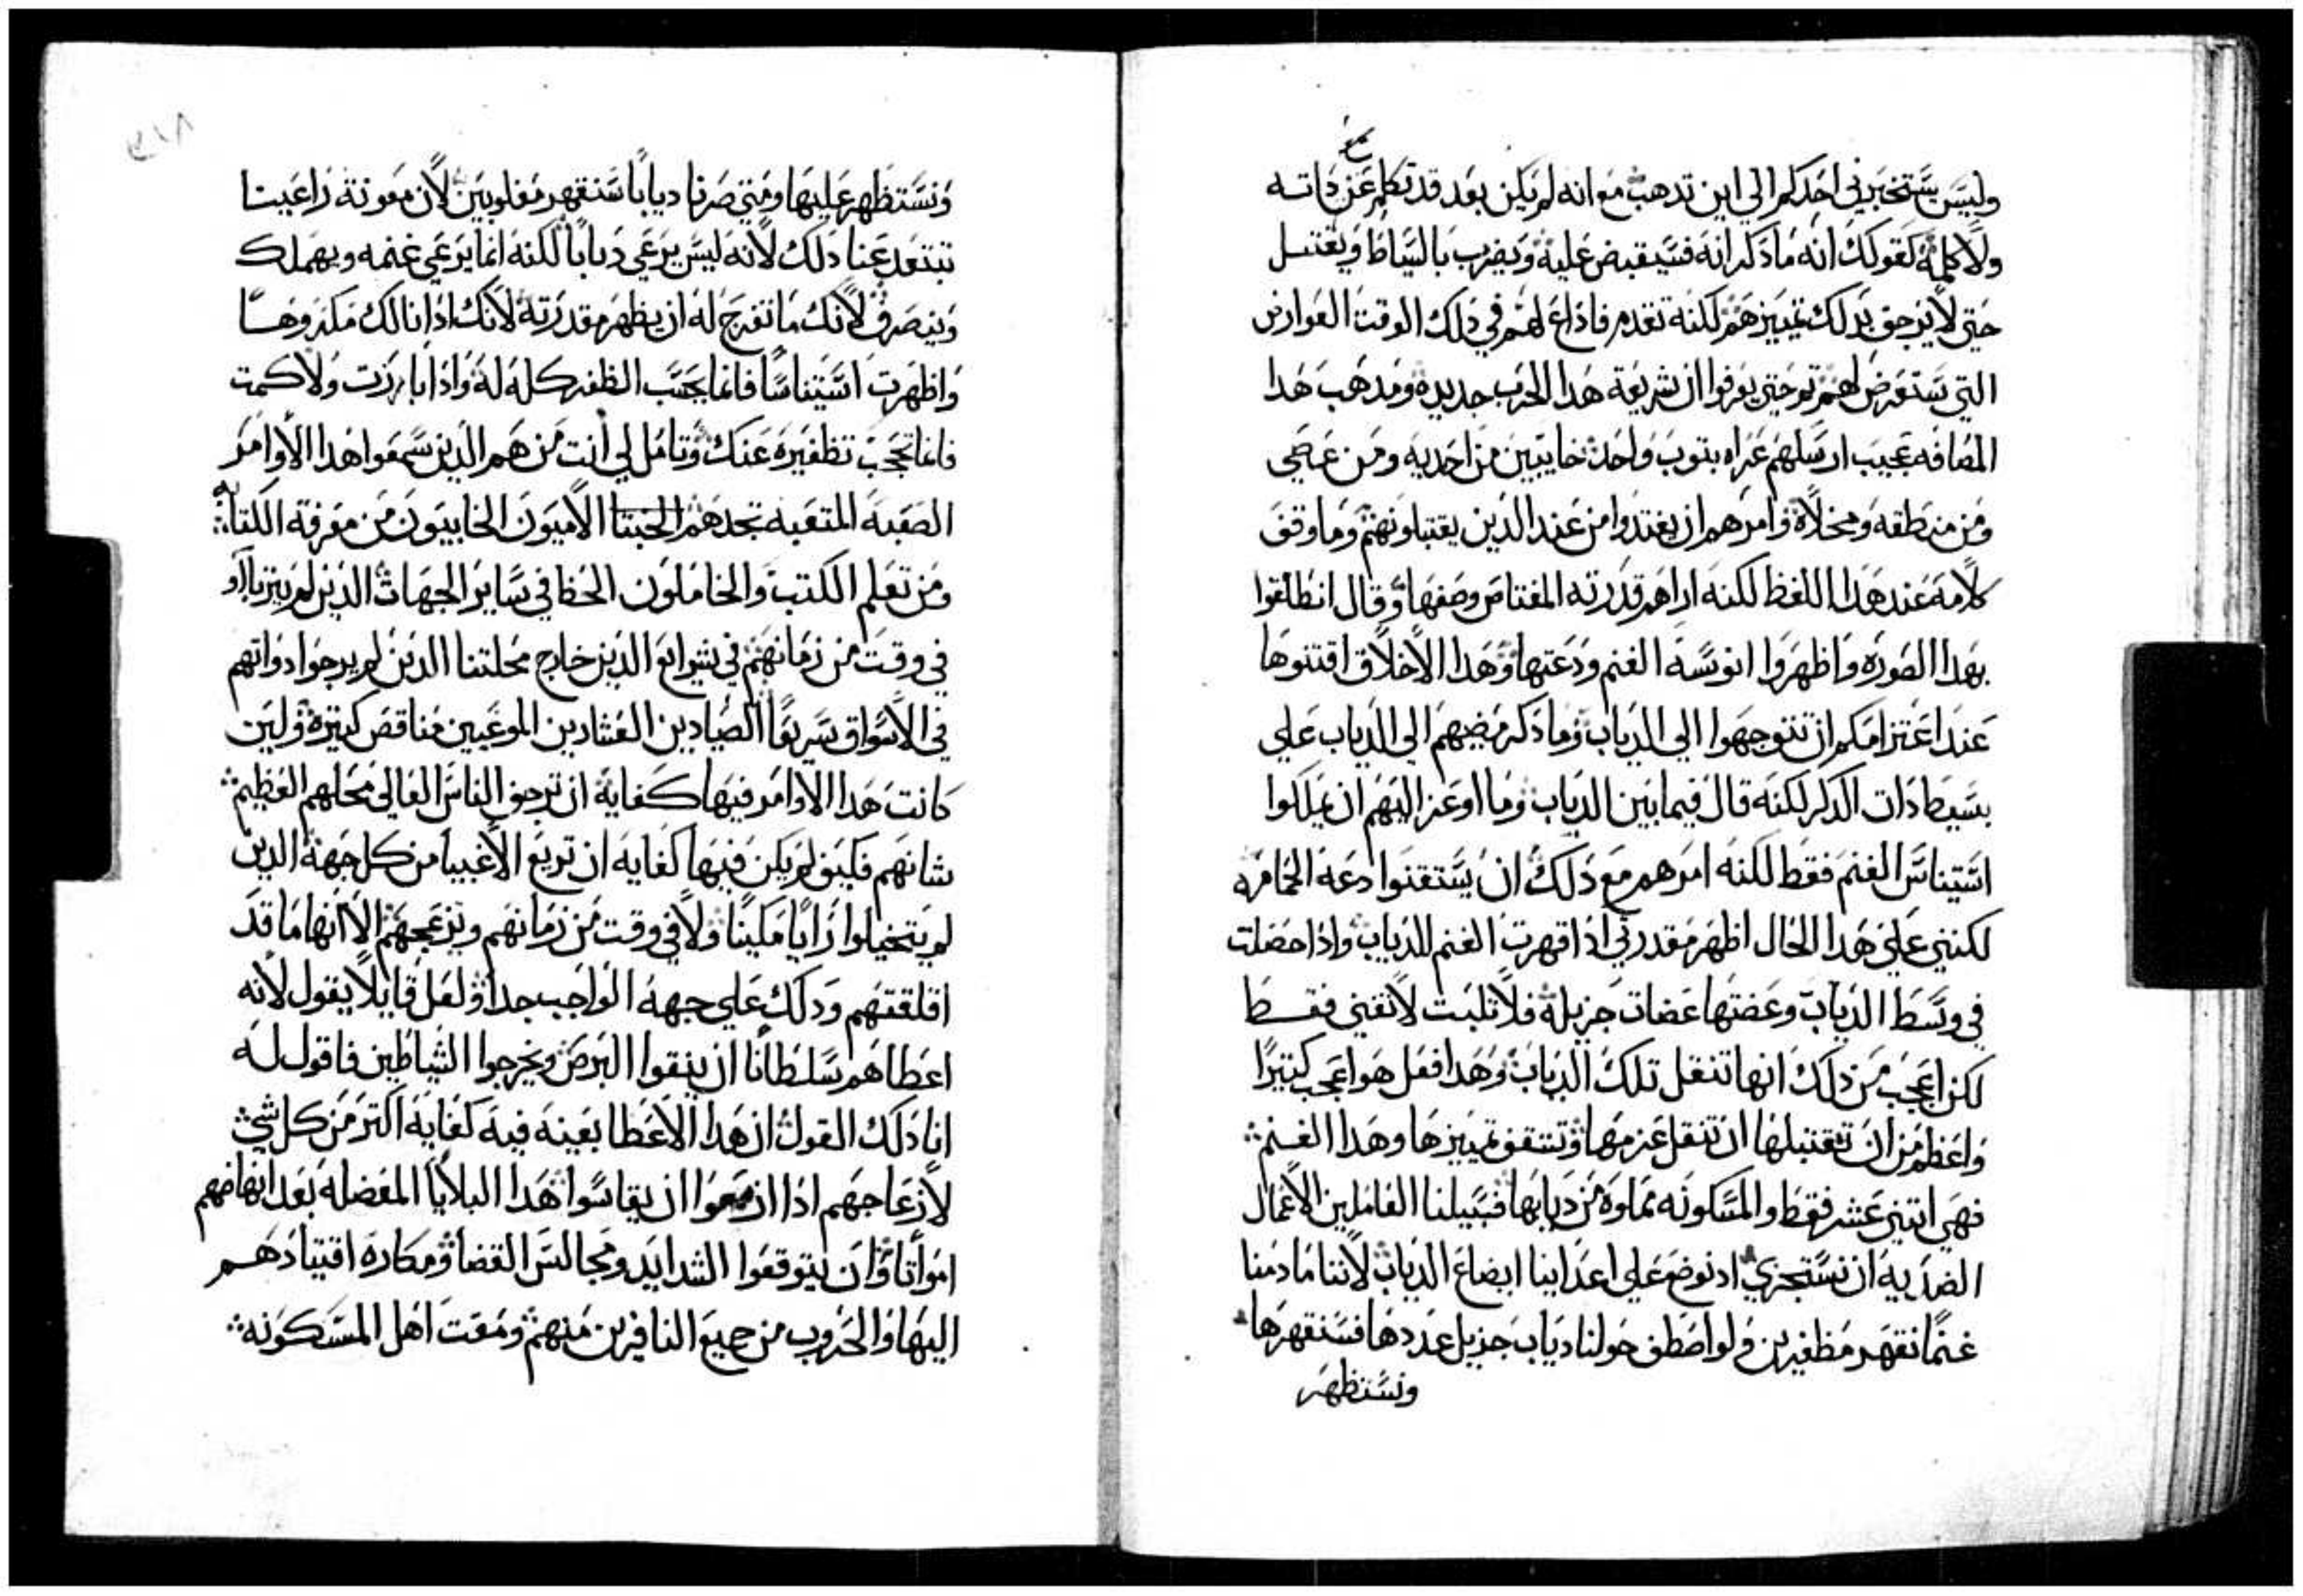 وليس يستخبرني احدكم الي اين تدهب مع انه لم يكن بعد قد تكلم عن داته
ولا كلمة كقولك انه ما دكر انه فسيقبض عليه ويضرب بالسياط ويقتتل
حتي لا يرجف بدلك تمييزهم لكنه تقدم فاداع لهم في دلك الوقت العوارض
التي ستعرض لهم تم حتي يعرفوا ان شريعة هدا الحرب جديده ومدهب هدا
المصافه عجيب ارسلهم عراه بتوب واحد خاييبين من احديه ومن عصي
ومن منطقه ومخلاة وامرهم ان يغتدوا من عند الدين يقتبلونهم وما وقف
كلامه عند هدا اللفظ لكنه اراهم قدرته المعتاص وصفها وقال انطلقوا
بهدا الصوره واظهروا انوسة الغنم ودعتها وهدا الاخلاق اقتنوها
عند اعتزامكم ان تتوجهوا الي الدياب وما دكر مضيهم الي الدياب علي
بسيط دات الدكر لكنه قال فيما بين الدياب وما اوعز اليهم ان يملكوا
استيناس الغنم فقط لكنه امرهم مع دلك ان يستقنوا دعة الحمامه
لكنني علي هدا الحال اظهر مقدرتي ادا قهرت الغنم للدياب وادا حصلت
في وسط الدياب وعضتها عضات جزيله فلا تلبت لا تفني فقط
لكن اعجب من دلك انها تنقل تلك الدياب وهدا فعل هو اعجب كتيرا
واعظم من ان تقتبلها ان تنقل عزمها وتتقف تمييزها وهدا الغنم
فهي اتني عشر فقط والمسكونه مماوه من ديابها فسبيلنا العاملين الاعمال
الضديه ان نستجزي اد نوضع علي اعداينا ايضاع الدياب لاننا ما دمنا
غنما نقهر مظفرين ولو اصطف حولنا دياب جزيل عددها فسنقهرها
ونستظهر
ونستظهر عليها ومتي صرنا ديابا سنقهر مغلوبين لان معونة راعينا
تبتعد عنا دلك لانه ليس يرعي ديابا لكنه انما يرعي غنمه ويهملك
وينصرف لانك ما تفرج له ان يظهر مقدرته لانك ادا نالك مكروها
واظهرت استيناسا فانما يحسب الظفر كله له وادا بارزت ولاكمت
فانما تحجب تظفيره عنك وتامل لي انت من هم الدين سمعوا هدا الاوامر
الصعبه المتعبه تجدهم الحبتا الاميون الخاييون من معرفة الكتابه
ومن تعلم الكتب والخاملون الحظ في ساير الجهات الدين لم يتربا او
في وقت من زمانهم في شرايع الدين خارج محلتنا الدين لم يرجوا دواتهم
في الاسواق سريعا الصيادين العشارين الموعبين مناقص كتيرة ولين
كانت هدا الاوامر فيها كفاية ان ترجف الناس العالي محلهم العظيم
شانهم فكيف لم يكن فيها كفايه ان تريع الاغبيا من كل جهة الدين
لم يتخيلوا رايا مكينا ولا في وقت من زمانهم وتزعجهم الا انها ما قد
اقلقتهم ودلك علي جهة الواجب جدا ولعل قايلا يقول لانه
اعطاهم سلطانا ان ينقوا البرص ويخرجوا الشياطين فاقول له
انا دلك القول ان هدا الاعطا بعينه فيه كفايه اكتر من كل شي
لازعاجهم ادا ازمعوا ان يقاسوا هدا البلايا المعضله بعد انهاضهم
امواتا وان يتوقعوا الشدايد ومجالس القضا ومكاره اقتيادهم
اليها والحروب من جميع النافرين منهم ومقت اهل المسكونه